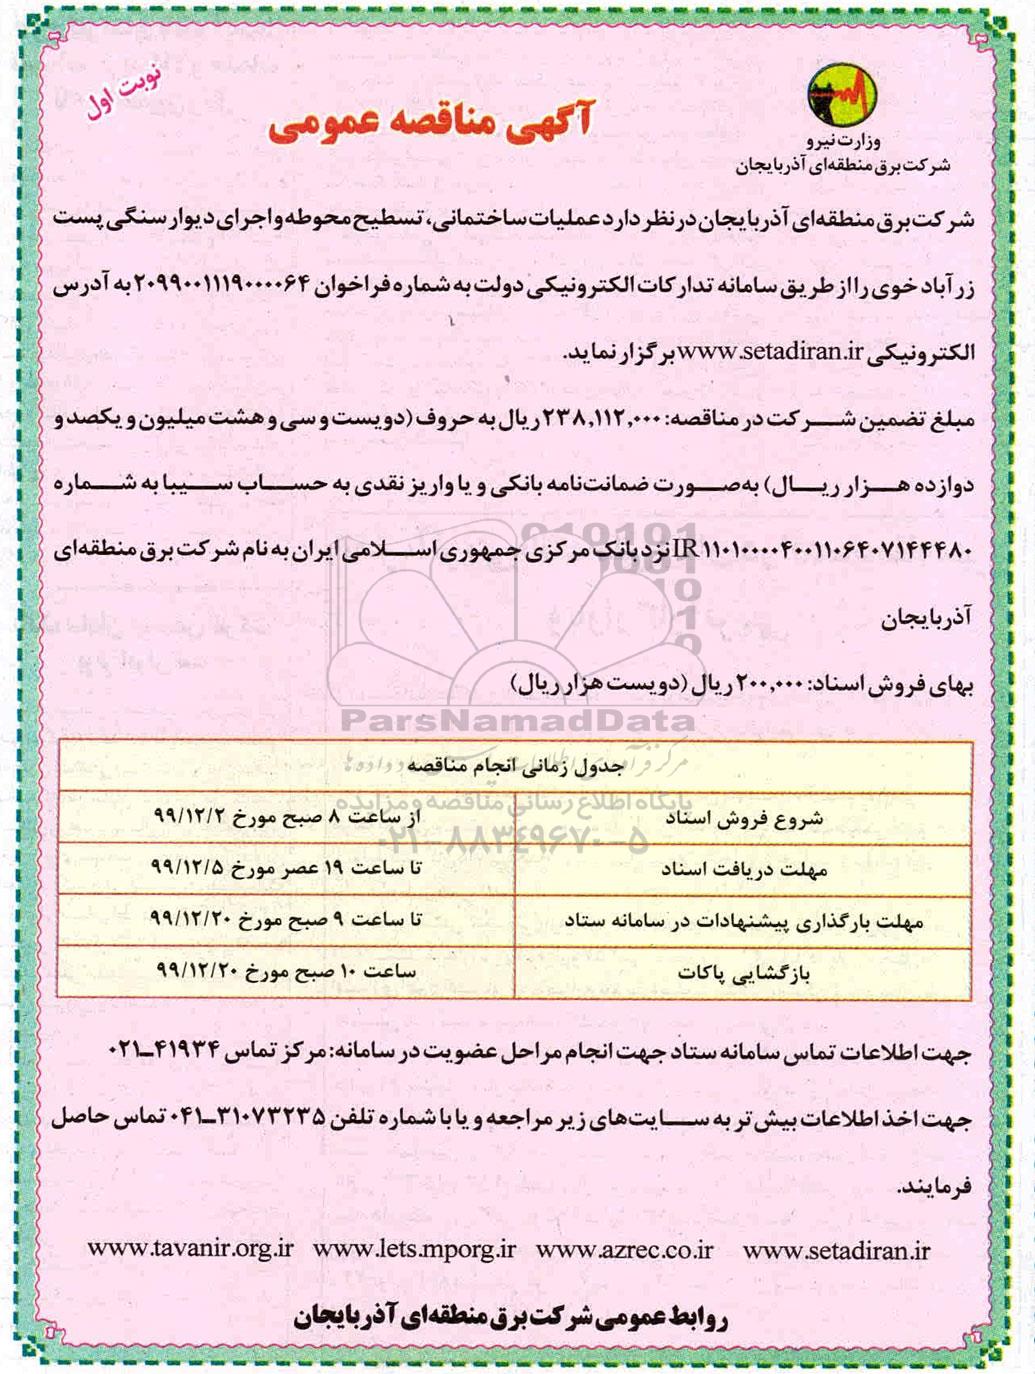 نوبت اول
آگهی مناقصه عمومی
وزارت نیرو
شرکت برق منطقه‌ای آذربایجان
شرکت برق منطقه‌ای آذربایجان در نظر دارد عملیات ساختمانی، تسطیح محوطه و اجرای دیوار سنگی پست
زرآباد خوی را از طریق سامانه تدارکات الکترونیکی دولت به شماره فراخوان ۲۰۹۹۰۰۱۱۱۹۰۰۰۰۶۴ به آدرس
الکترونیکی www.setadiran.ir برگزار نماید.
مبلغ تضمین شرکت در مناقصه: ۲۳۸,۱۱۲,۰۰۰ ریال به حروف (دویست و سی و هشت میلیون و یکصد و
دوازده هزار ریال) به‌صورت ضمانت‌نامه بانکی و یا واریز نقدی به حساب سیبا به شماره
IR ۱۱۰۱۰۰۰۰۴۰۰۱۱۰۶۴۰۷۱۴۴۴۸۰ نزد بانک مرکزی جمهوری اسلامی ایران به نام شرکت برق منطقه‌ای
آذربایجان
بهای فروش اسناد: ۲۰۰,۰۰۰ ریال (دویست هزار ریال)
ParsNamadData
جدول زمانی انجام مناقصه
پایگاه اطلاع رسانی مناقصه و مزایده
شروع فروش اسناد از ساعت ۸ صبح مورخ ۹۹/۱۲/۲
۰۲۱-۸۸۳۴۹۶۷۰-۵
مهلت دریافت اسناد تا ساعت ۱۹ عصر مورخ ۹۹/۱۲/۵
مهلت بارگذاری پیشنهادات در سامانه ستاد تا ساعت ۹ صبح مورخ ۹۹/۱۲/۲۰
بازگشایی پاکات ساعت ۱۰ صبح مورخ ۹۹/۱۲/۲۰
جهت اطلاعات تماس سامانه ستاد جهت انجام مراحل عضویت در سامانه: مرکز تماس ۴۱۹۳۴-۰۲۱
جهت اخذ اطلاعات بیش‌تر به سایت‌های زیر مراجعه و یا با شماره تلفن ۳۱۰۷۳۲۳۵-۰۴۱ تماس حاصل
فرمایند.
www.tavanir.org.ir www.lets.mporg.ir www.azrec.co.ir www.setadiran.ir
روابط عمومی شرکت برق منطقه‌ای آذربایجان